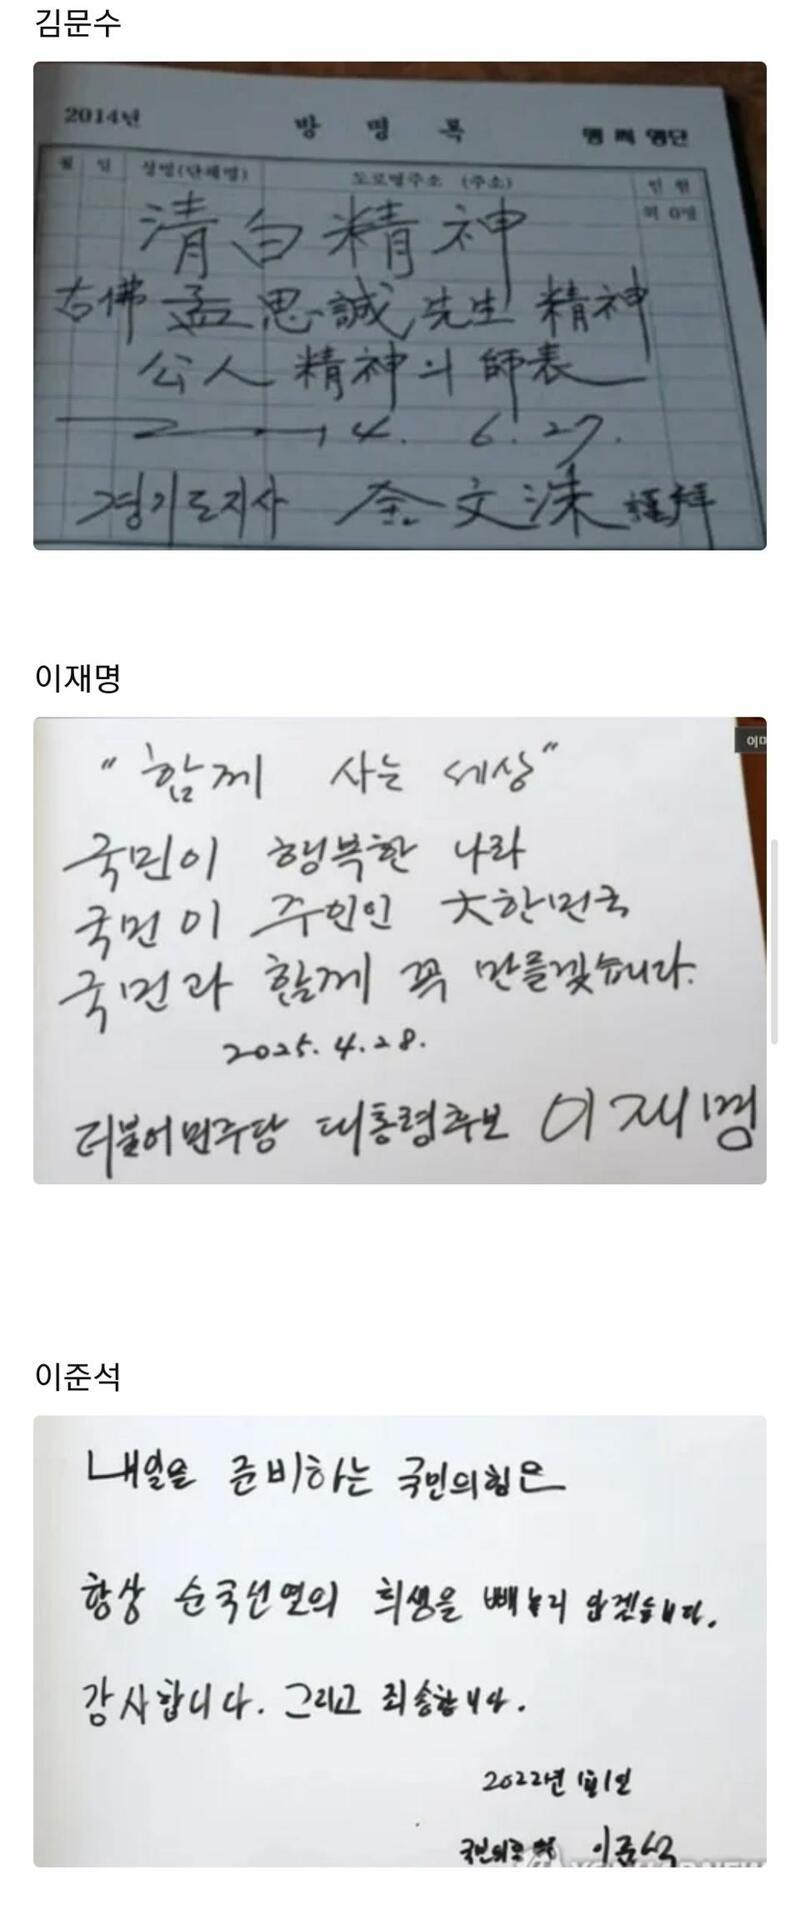 김문수
2014년 방 명 록
월 일 성명(단체명) 도로명주소 (주소) 인 원
외 0명
淸白精神
古佛 孟思誠 先生 精神
公人 精神의 師表
2014. 6. 27.
경기도지사 金文洙 謹拜
이재명
이미
"함께 사는 세상"
국민이 행복한 나라
국민이 주인인 大한민국
국민과 함께 꼭 만들겠습니다.
2025. 4. 28.
더불어민주당 대통령후보 이재명
이준석
내일을 준비하는 국민의힘은
항상 순국선열의 희생을 빼놓지 않겠습니다.
감사합니다. 그리고 죄송합니다.
2022년 1월 1일
국민의힘 이준석